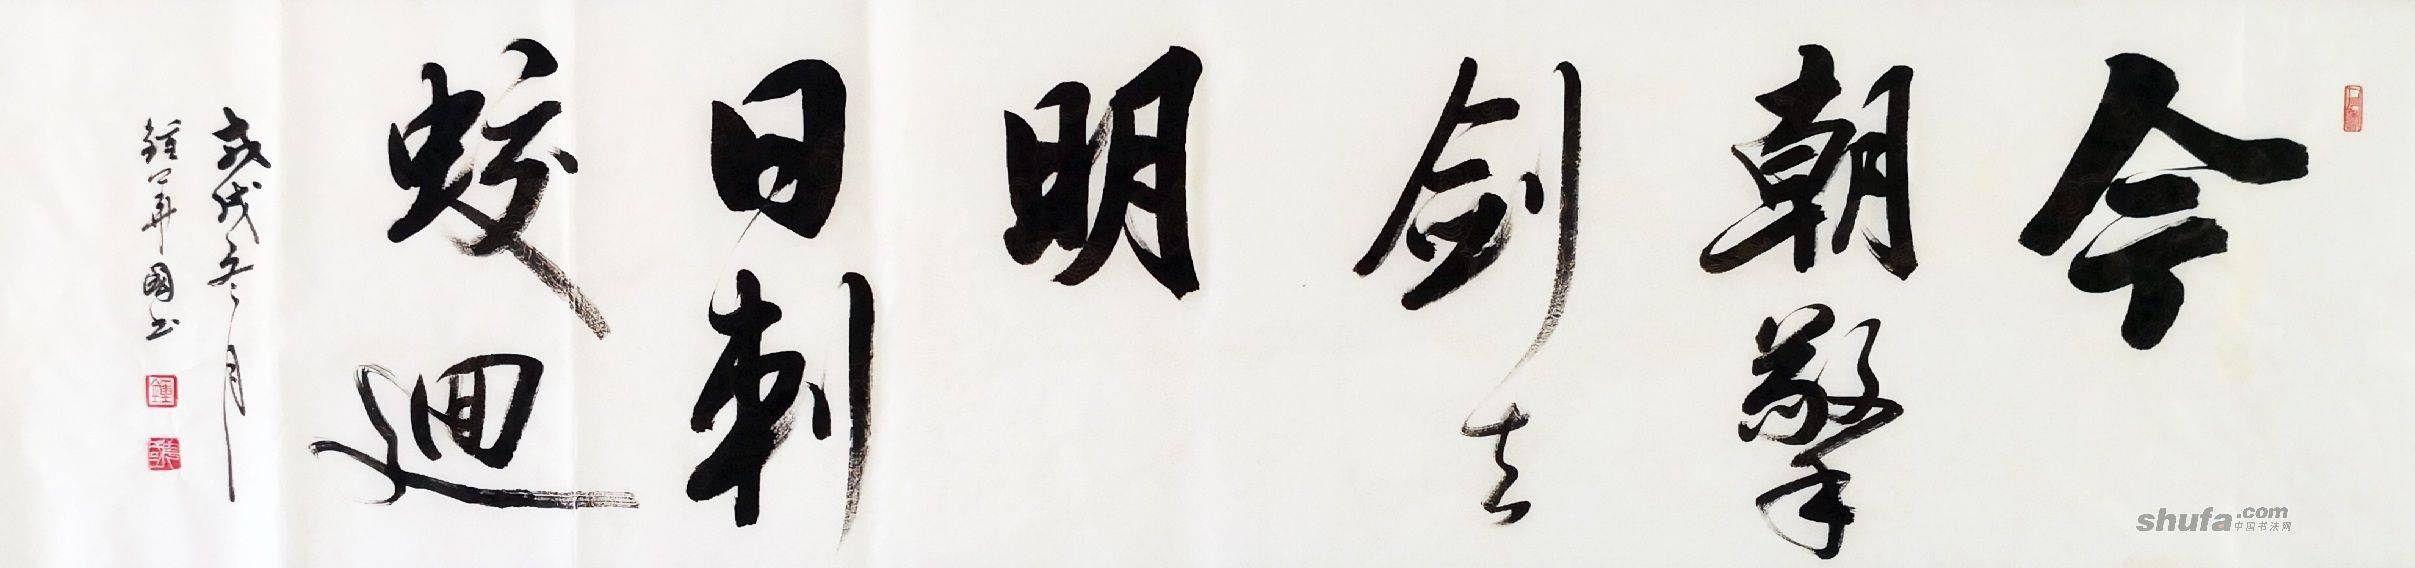 今
朝擎
剑去
明
日刺
蛟迴
戊戌冬月
鍾華國书
鍾
shufa.com
中国书法网